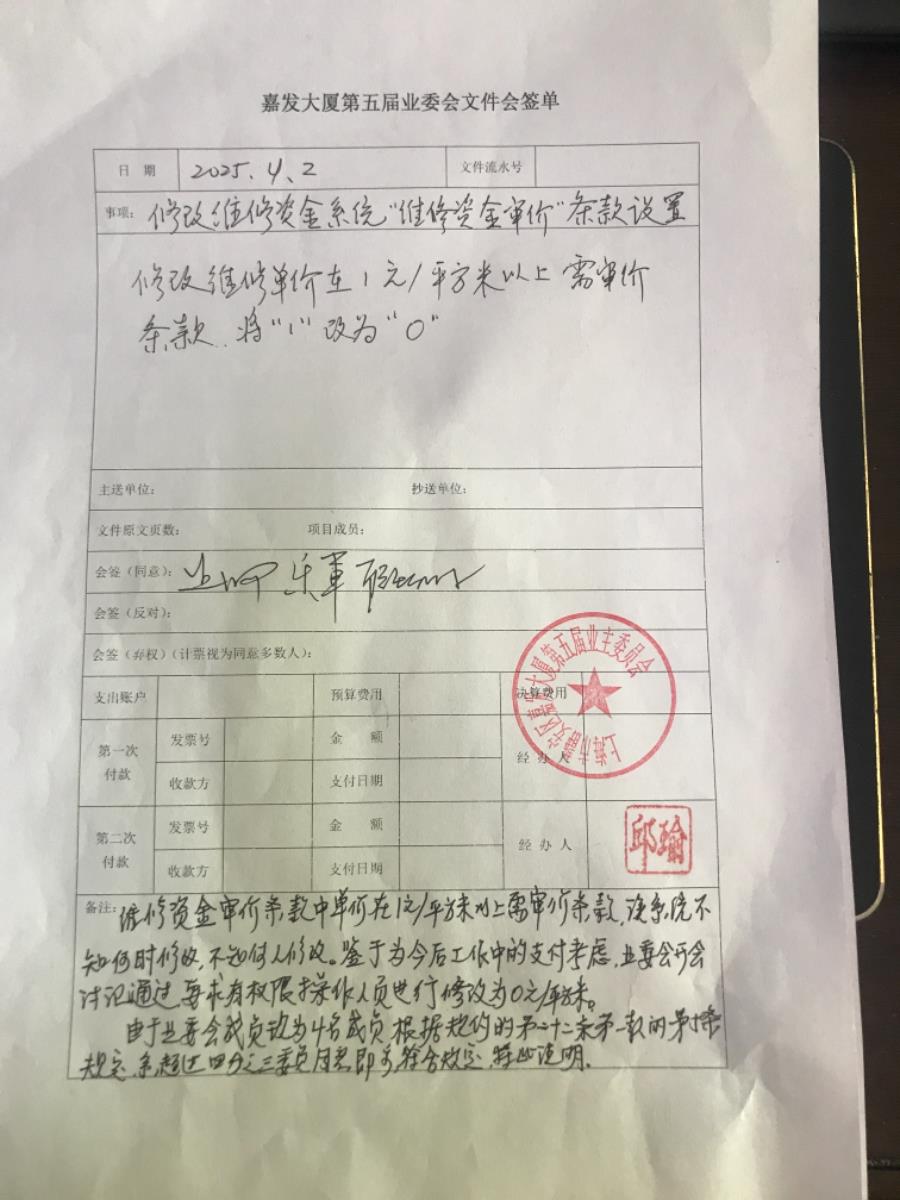 嘉发大厦第五届业委会文件会签单
日 期 2025.4.2 文件流水号
事项：修改维修资金系统"维修资金审价"条款设置
修改维修单价在1元/平方米以上需审价
条款.将"1"改为"0"
主送单位： 抄送单位：
文件原文页数： 项目成员：
会签（同意）： 乐军
会签（反对）：
会签（弃权）（计票视为同意多数人）：
上海市静安区嘉发大厦第五届业主委员会
支出账户 预算费用 决算费用
第一次付款 发票号 金 额 经 办 人
收款方 支付日期
第二次付款 发票号 金 额 经 办 人
收款方 支付日期
邱瑜
备注：维修资金审价条款中单价在1元/平方米以上需审价条款,该系统不
知何时修改,不知何人修改。鉴于为今后工作中的支付考虑,业委会开会
讨论通过,要求有权限操作人员进行修改为0元/平方米。
由于业委会成员改为4名成员,根据规约的第二十二条第一款的
规定,系超过四分之三委员同意即为符合规定,特此说明.